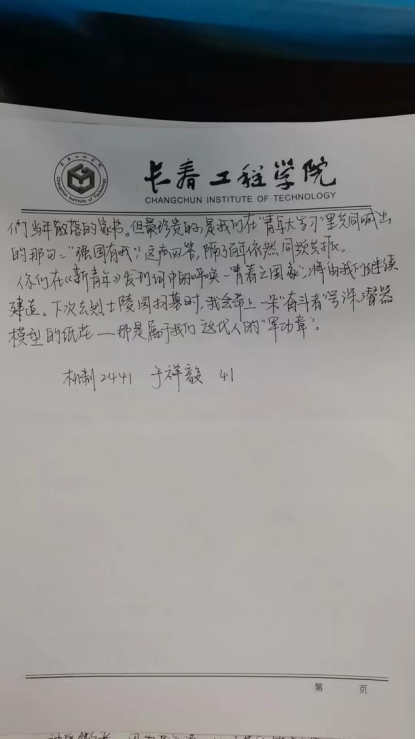 长春工程学院
CHANGCHUN INSTITUTE OF TECHNOLOGY
们当年散落的家书。但最珍贵的,是我们在"青年大学习"里共同喊出
的那句:"强国有我"。这声回答,隔了百年依然同频共振。
你们在《新青年》发刊词中的呼唤—青春之国家,将由我们继续
建造。下次去烈士陵园扫墓时,我会带上一朵"奋斗者"号深潜器
模型的纸花——那是属于我们这代人的"军功章"。
机制2441 于祥毅 41
第 页